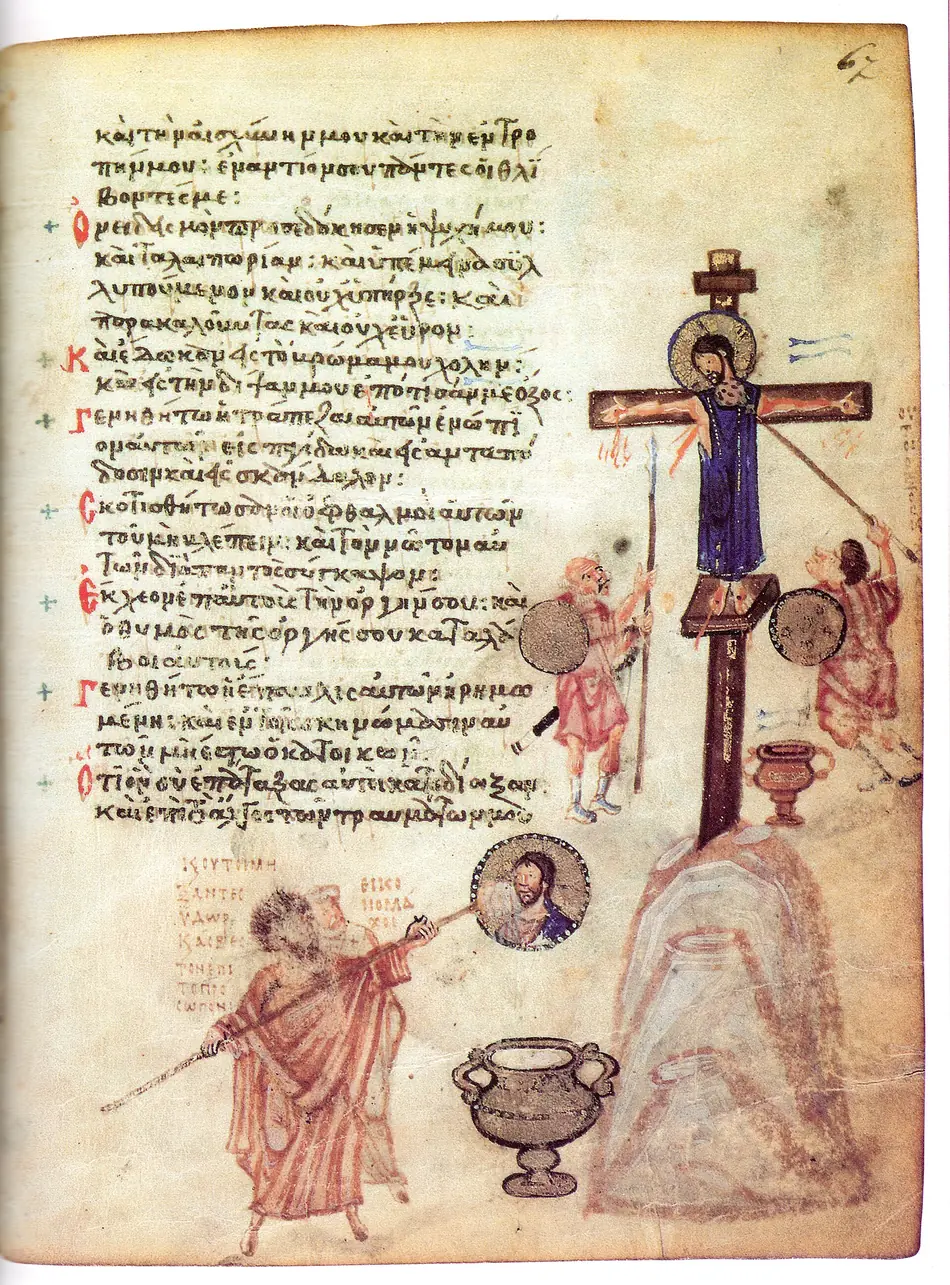 67
καὶ τὴν αἰσχύνην μου καὶ τὴν ἐντρο
πήν μου: ἐναντίον σου πάντες οἱ θλί
βοντές με:
Ὀνειδισμὸν προσεδόκησεν ἡ ψυχή μου:
καὶ ταλαιπωρίαν: καὶ ὑπέμεινα συλ
λυπούμενον καὶ οὐχ ὑπῆρξε: καὶ
παρακαλοῦντας καὶ οὐχ εὗρον:
Καὶ ἔδωκαν εἰς τὸ βρῶμα μου χολήν:
καὶ εἰς τὴν δίψαν μου ἐπότισάν με ὄξος:
Γενηθήτω ἡ τράπεζα αὐτῶν ἐνώπι
ον αὐτῶν εἰς παγίδα καὶ εἰς ἀνταπό
δοσιν καὶ εἰς σκάνδαλον:
Σκοτισθήτωσαν οἱ ὀφθαλμοὶ αὐτῶν
τοῦ μὴ βλέπειν: καὶ τὸν νῶτον αὐ
τῶν διὰ παντὸς σύγκαμψον:
Ἔκχεον ἐπ' αὐτοὺς τὴν ὀργήν σου: καὶ
ὁ θυμὸς τῆς ὀργῆς σου καταλά
βοι αὐτούς:
Γενηθήτω ἡ ἔπαυλις αὐτῶν ἠρημω
μένη: καὶ ἐν τοῖς σκηνώμασιν αὐ
τῶν μὴ ἔστω ὁ κατοικῶν:
Ὅτι ὃν σὺ ἐπάταξας αὐτοὶ κατεδίωξαν:
καὶ ἐπὶ τὸ ἄλγος τῶν τραυμάτων μου
Κ ΟΥΤΟΙ ΜΗ
ΞΑΝΤΕC
ΥΔΩΡ
ΚΑΙ
ΕΙΚΟ
ΝΟΜΑ
ΧΟΙ